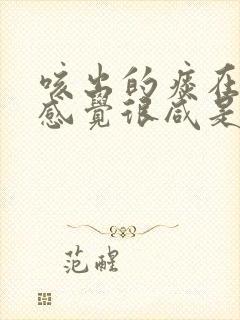 咳出的痰在
感覺很咸是
范醒